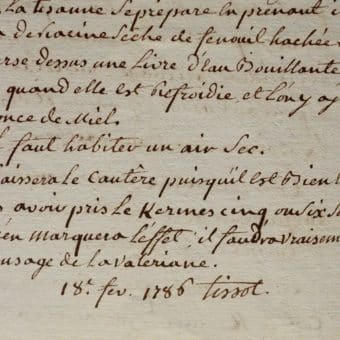 La tisanne se prépare en prenant
de Racine sèche de fenouil hachée
verse dessus une Livre d'Eau Bouillante
quand elle est Refroidie, et l'on y aj
once de Miel.
faut habiter un air sec.
aissera le cautère puisqu'il est Bien
avoir pris le Kermes cinq ou six
en marquera l'effet; il faudra vraisem
usage de la valeriane.
18e. fev. 1786 Tissot.